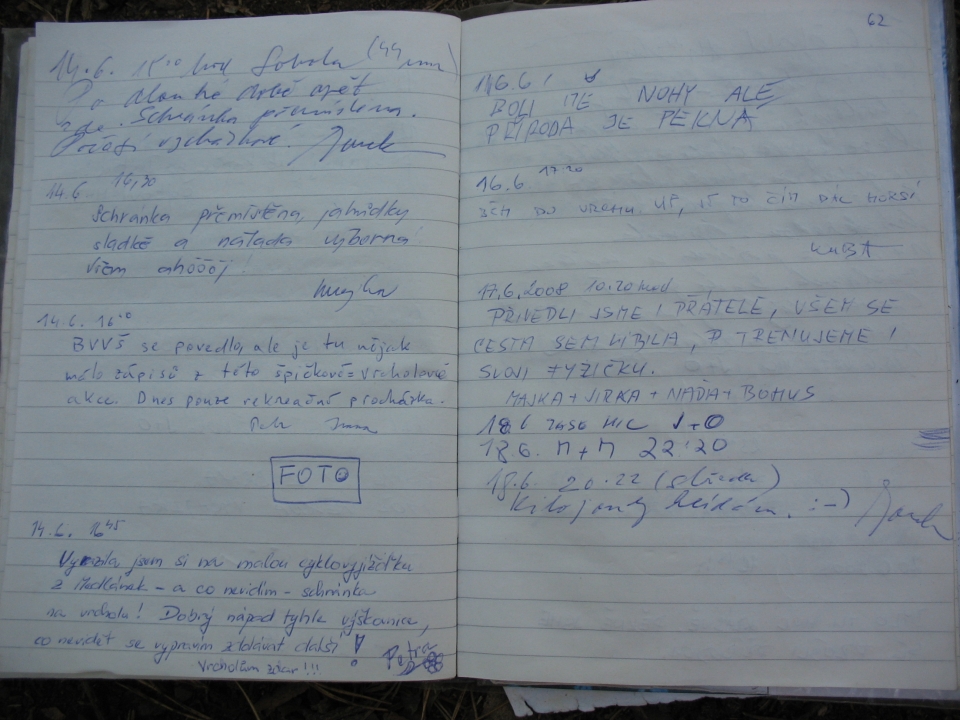 14.6. 15¹⁰ hod Sobota (44 min)
Po dlouhé době opět
zde. Schránka přemístěna.
Počasí vycházkové. Jarek
14.6 16,30
Schránka přemístěna, jahůdky
sladké a nálada výborná!
Všem ahóóój!
Majka
14.6. 16¹⁰
BVVŠ se povedlo, ale je tu nějak
málo zápisů z této špičkově=vrcholové
akce. Dnes pouze rekreační procházka.
Petr Ivana
FOTO
14.6. 16⁴⁵
Vyrazila jsem si na malou cyklovyjížďku
z Medlánek - a co nevidím - schránka
na vrcholu! Dobrý nápad tyhle výškovnice,
co nevidět se vypravím zdolávat další!
Petra
Vrcholům zdar!!!
62
16.6!
BOLÍ MĚ NOHY ALE
PŘÍRODA JE PĚKNÁ
16.6 17:20
BĚH DO VRCHU UF, JE TO ČÍM DÁL HORŠÍ
KUBA
17.6.2008 10.20 hod
PŘIVEDLI JSME I PŘÁTELE, VŠEM SE
CESTA SEM LÍBILA, TRÉNUJEME I
SVOJI FYZIČKU.
MAJKA + JIRKA + NAĎA + BOHUŠ
18.6 ZASE NIC J+O
18.6. M+M 22:20
18.6. 20.22 (středa)
Kilojouly :-) Jarek